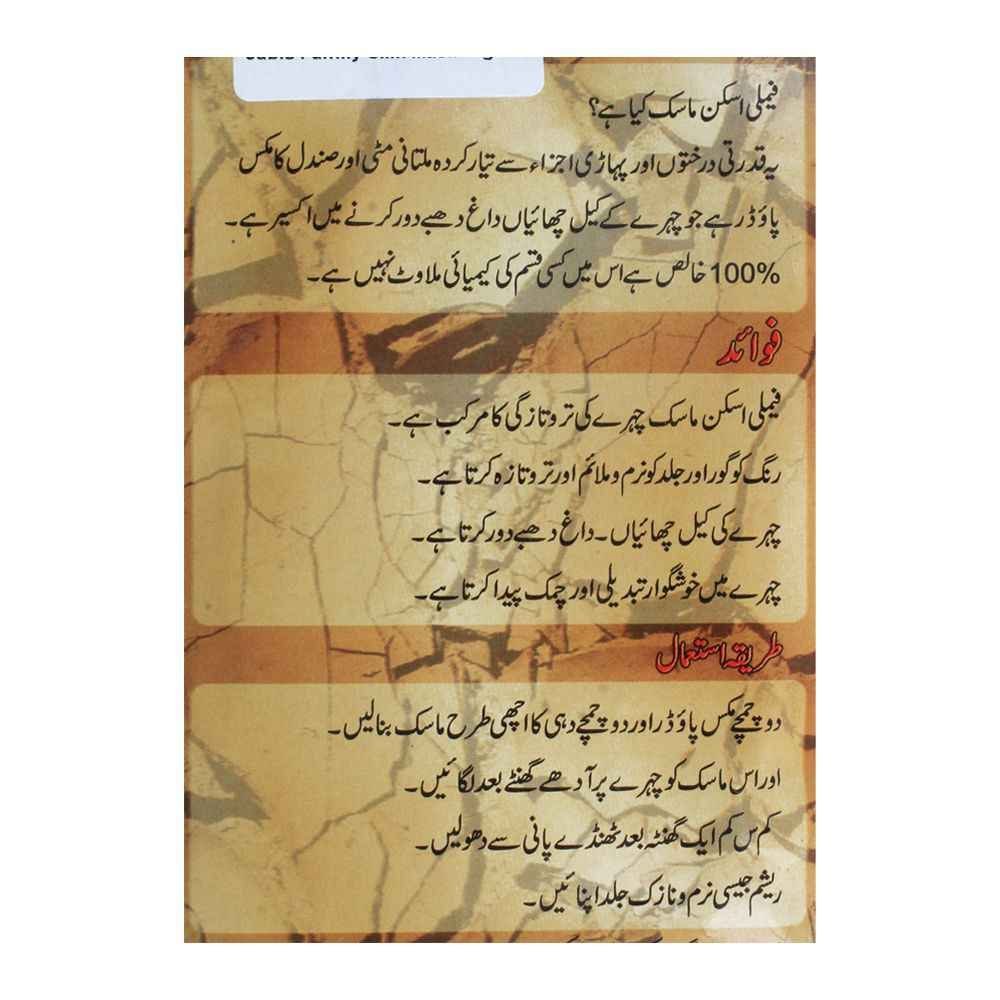 Family Skin
فیملی اسکن ماسک کیا ہے؟
یہ قدرتی درختوں اور پہاڑی اجزاء سے تیار کردہ ملتانی مٹی اور صندل کا مکس
پاؤڈر ہے جو چہرے کے کیل چھائیاں داغ دھبے دور کرنے میں اکسیر ہے۔
100% خالص ہے اس میں کسی قسم کی کیمیائی ملاوٹ نہیں ہے۔
فوائد
فیملی اسکن ماسک چہرے کی تروتازگی کا مرکب ہے۔
رنگ کو گور اور جلد کو نرم و ملائم اور تروتازہ کرتا ہے۔
چہرے کی کیل چھائیاں۔ داغ دھبے دور کرتا ہے۔
چہرے میں خوشگوار تبدیلی اور چمک پیدا کرتا ہے۔
طریقہ استعمال
دو چمچے مکس پاؤڈر اور دو چمچے دہی کا اچھی طرح ماسک بنالیں۔
اور اس ماسک کو چہرے پر آدھے گھنٹے بعد لگائیں۔
کم س کم ایک گھنٹہ بعد ٹھنڈے پانی سے دھولیں۔
ریشم جیسی نرم و نازک جلد اپنائیں۔